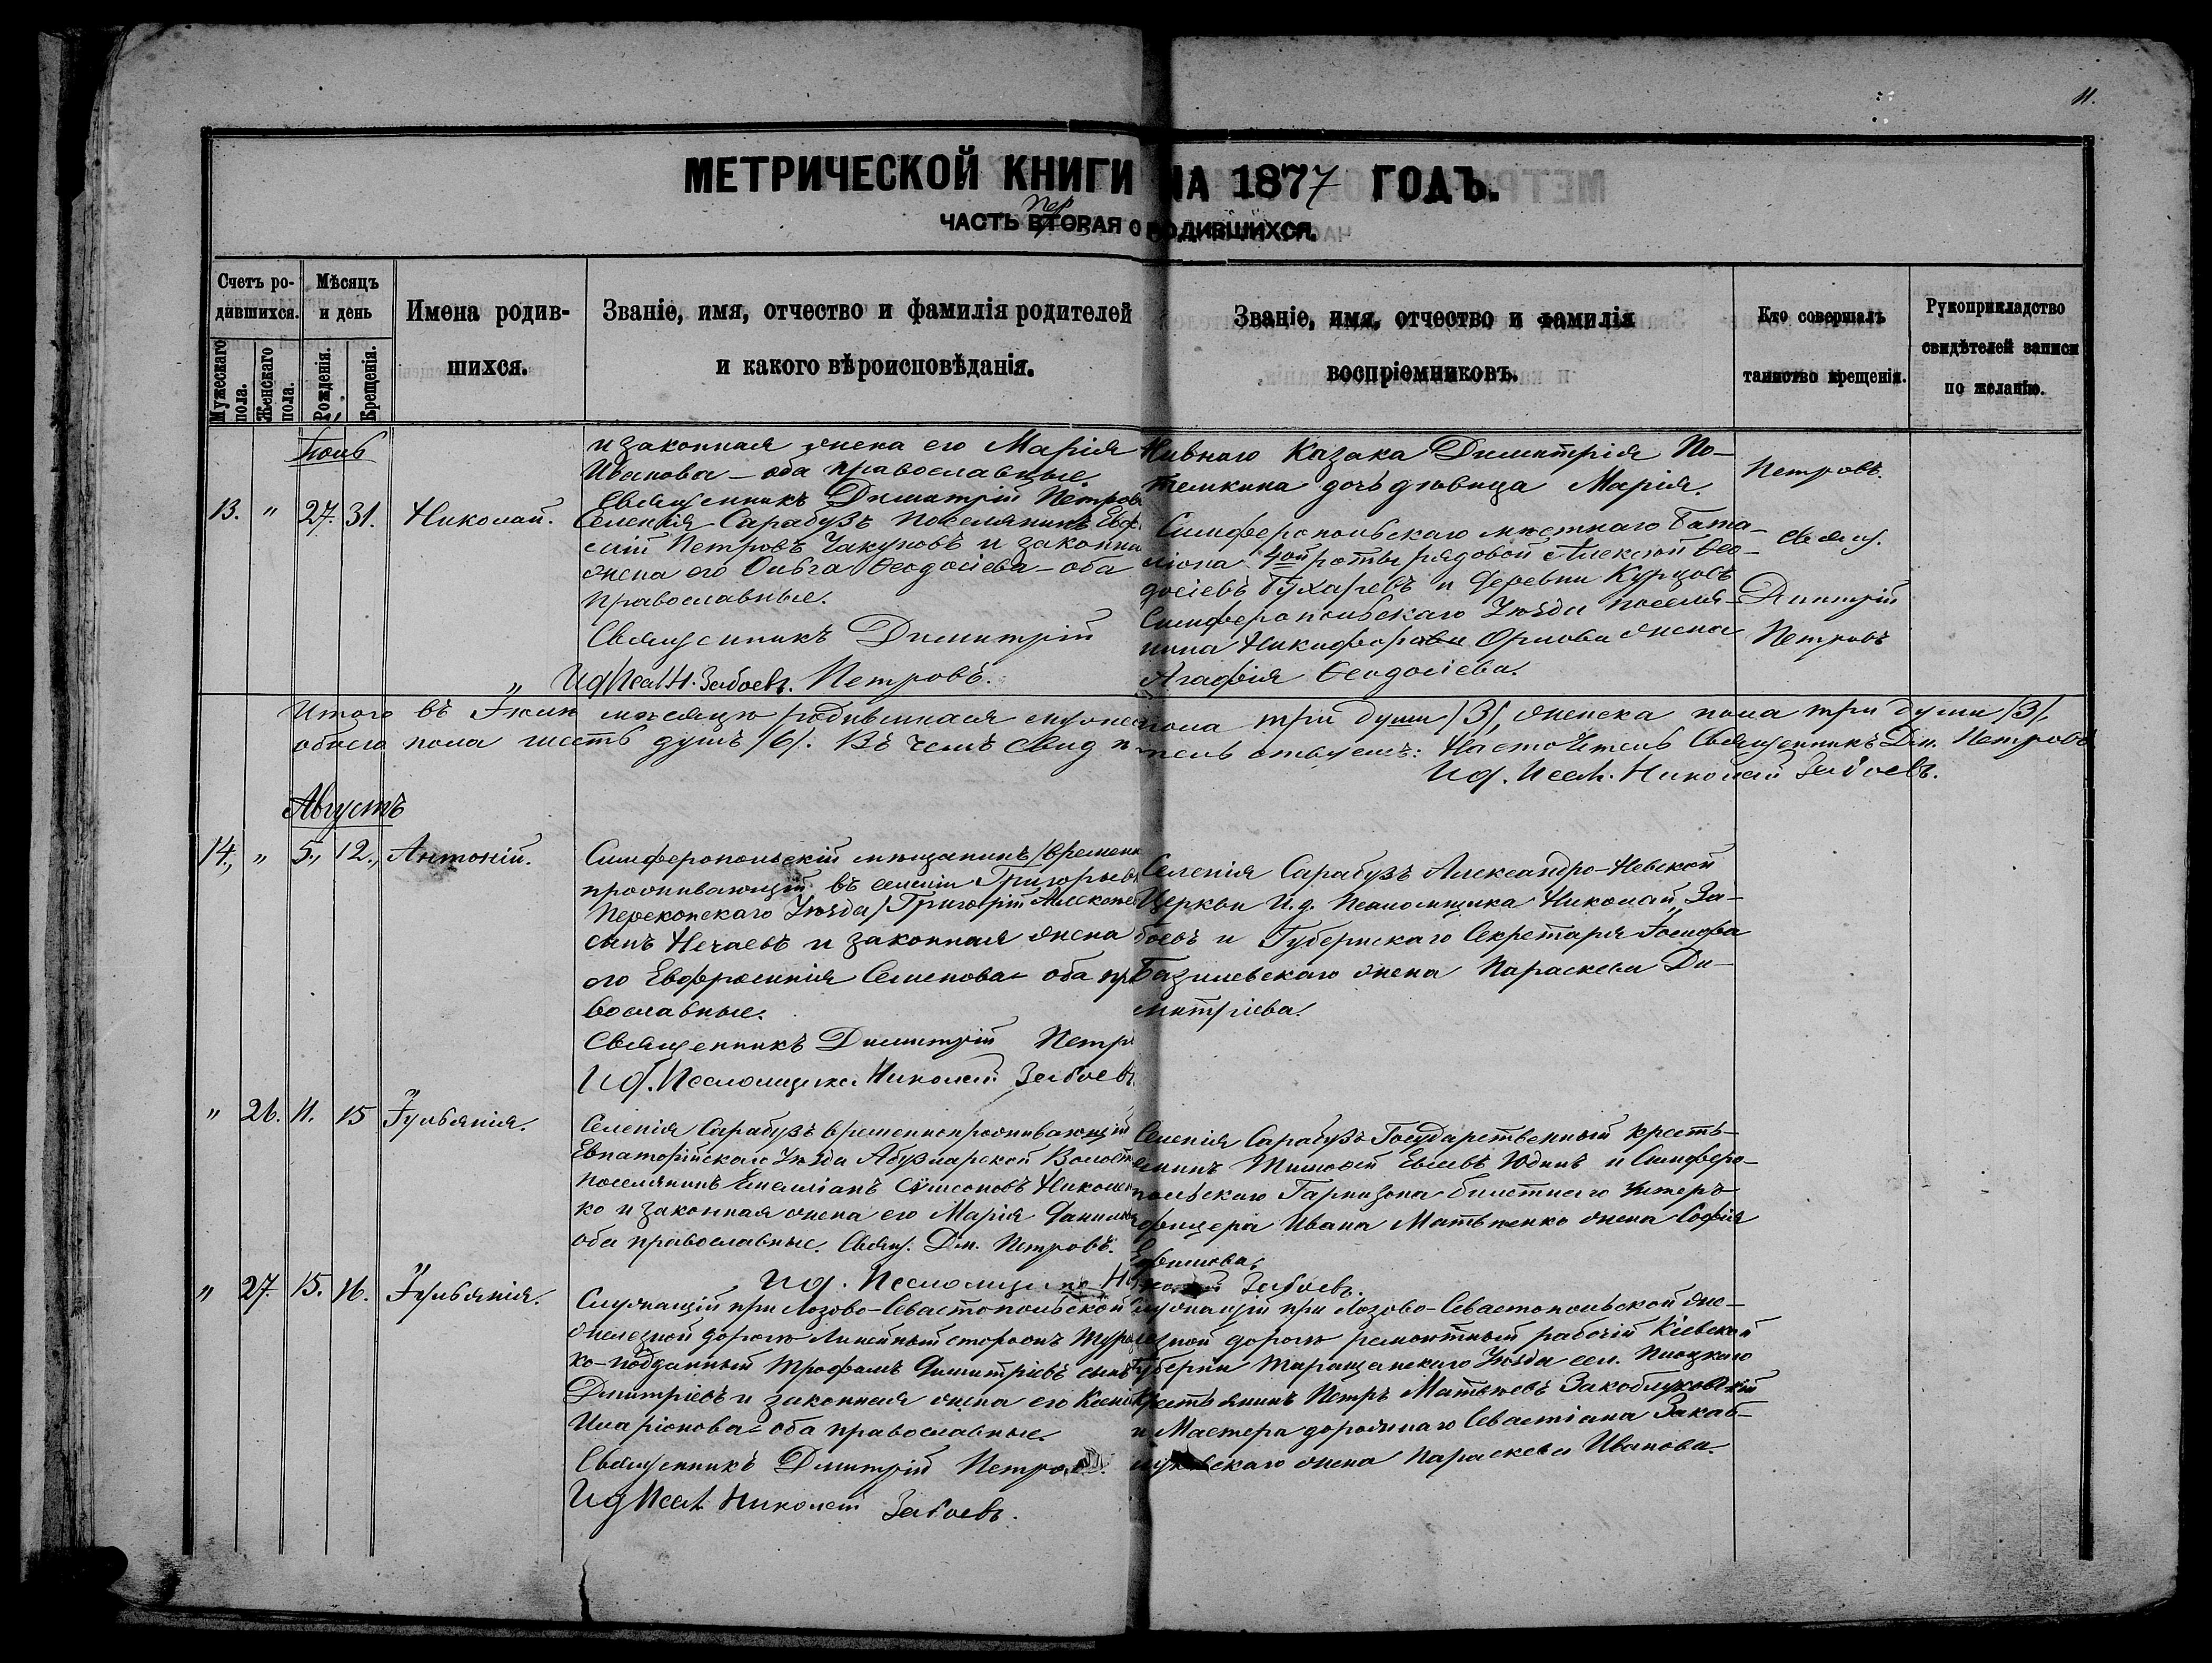 11.
МЕТРИЧЕСКОЙ КНИГИ НА 1877 ГОДЪ.
Пер
ЧАСТЬ ВТОРАЯ О РОДИВШИХСЯ.
Счетъ ро-
дившихся.
Мужескаго пола.
Женскаго пола.
Мѣсяцъ
и день
Рожденія.
Крещенія.
Имена родив-
шихся.
Званіе, имя, отчество и фамилія родителей
и какого вѣроисповѣданія.
Званіе, имя, отчество и фамилія
воспріемниковъ.
Кто совершалъ
таинство крещенія.
Рукоприкладство
свидѣтелей записи
по желанію.
и законная жена его Марія
Иванова – оба православные.
Священникъ Димитрій Петровъ
казака Димитрія По-
темкина дочь дѣвица Марія.
Петровъ.
13. " 27. 31. Николай.
Селенія Сарабузъ поселянинъ
Петровъ Чакуновъ и законна
жена его Ольга Ѳеодосіева – оба
православные.
Священникъ Димитрій
Ид Псал Н. Забоевъ. Петровъ.
Симферопольскаго мѣстнаго Бата-
ліона 4ой роты рядовой Алексѣй Ѳео-
досіевъ Бухаревъ и деревни Курцовъ
Симферопольскаго Уѣзда поселя-
нина Никифора Орлова жена
Агафія Ѳеодосіева.
Свящ.
Димитрій
Петровъ
Итого въ мѣсяцѣ родившихся мужеска пола три души /3/, женска пола три души /3/,
обоего пола шесть душъ /6/. Въ чемъ свидѣтельствуемъ: Настоятель Священникъ Дм. Петровъ
Ид. Псал. Николай Забоевъ.
Августъ
14., " 5., 12., Антоній.
Симферопольскій мѣщанинъ /времен
проживающій въ селеніи Григорьев
Перекопскаго Уѣзда/ Григорій Алексѣев
сынъ Нечаевъ и законная жена
его Евфросинія Семенова – оба пра
вославные.
Священникъ Димитрій Петр
Ид. Псаломщика Николай Забоевъ.
Селенія Сарабузъ Александро-Невской
Церкви И. д. Псаломщика Николай За-
боевъ и Губернскаго Секретаря Іосифа
Базилевскаго жена Параскева Ди-
митріева.
" 26. 11. 15 Іульянія.
Селенія Сарабузъ временнопроживающій
Евпаторійскаго Уѣзда Абузларской Волости
поселянинъ Емеліанъ Симеоновъ Николен
ко и законная жена его Марія Данилова
оба православные. Свящ. Дм. Петровъ.
Ид. Псаломщика Николай Забоевъ.
Селенія Сарабузъ Государственный кресть-
янинъ Тимофей Евсевъ Юдинъ и Симферо-
польскаго Гарнизона унтеръ
офицера Ивана Матвѣенко жена Софія
" 27. 15. 16. Іульянія.
Служащій при Лозово-Севастопольской
желѣзной дорогѣ линейный сторожъ Турец
ко-подданный Трофимъ Димитріевъ сынъ
Дмитріевъ и законная жена его Ксенія
Иларіонова – оба православные.
Священникъ Дмитрій Петровъ.
Ид Псал. Николай Забоевъ.
Служащій при Лозово-Севастопольской же-
лѣзной дорогѣ ремонтный рабочій Кіевской
Губерніи Таращанскаго Уѣзда сел.
Крестьянинъ Петръ Матвѣевъ Закоблуковскій
и Мастера дорожнаго Севастіана Закаб-
луковскаго жена Параскева Иванова.